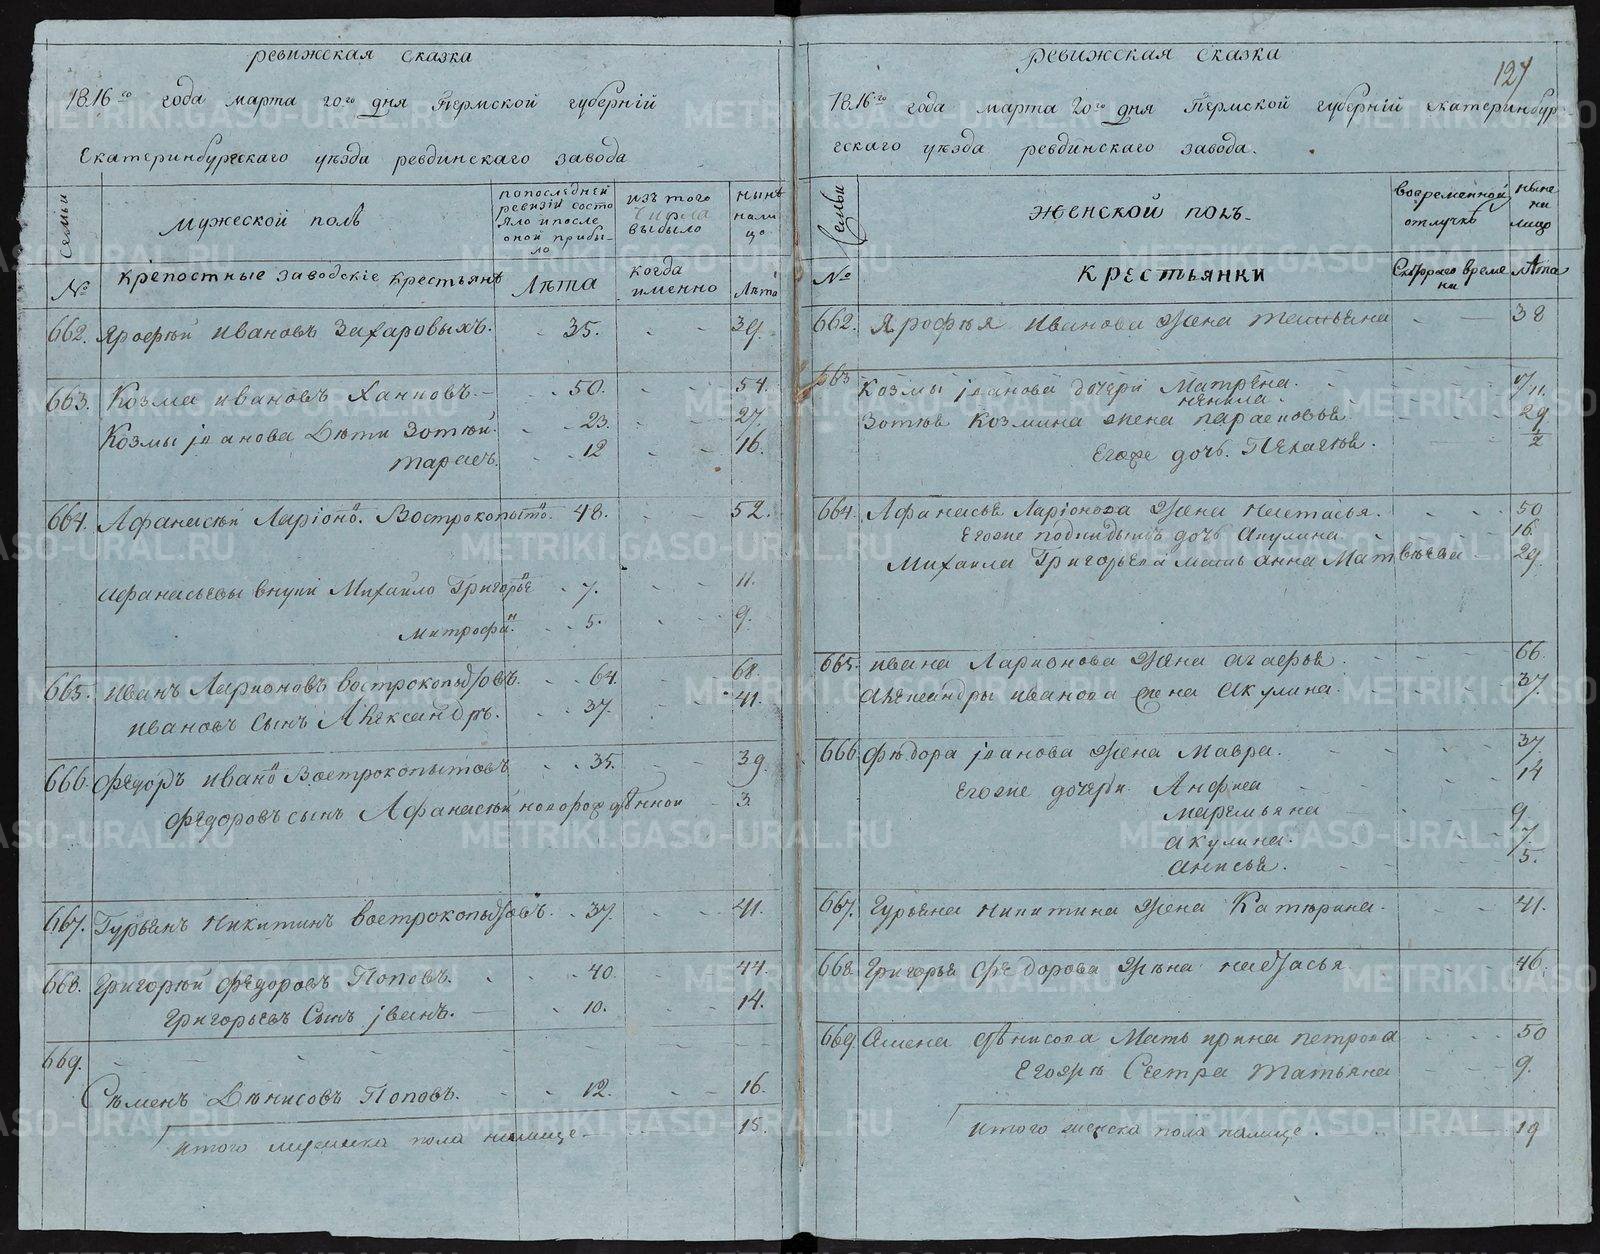 ревижская сказка
1816го года марта 20го дня Пермской губерніи
Екатеринбургскаго уѣзда ревдинскаго завода
Семьи
мужеской полъ
попоследней ревизіи состояло ипосле оной прибыло
изъ того числа выбыло
нынѣ налицо
№
крепостные заводскіе крестьянѣ
Лѣта
когда именно
Лѣта
662. Ярофѣй ивановъ Захаровыхъ. 35. 39.
663. Козма ивановъ Ханповъ 50. 54.
Козмы іванова Дѣти Зотѣй. 23. 27.
тарасъ. 12 16.
664. Афанасѣй Ларіоно. Вострокопыто. 48. 52.
Афанасьевы внуки Михаило Григорье 7. 11.
митрофа. 5. 9.
665. иванъ Ларионовъ вострокопытовъ. 64. 68.
ивановъ сынъ Александръ. 37. 41.
666. Федоръ ивано Вострокопытовъ 35. 39.
Федоровъ сынъ Афанасѣй новорожденной 3
667. Гурьянъ никитинъ вострокопытовъ. 37. 41.
668. Григорѣй Федоровъ Поповъ. 40. 44.
Григорьевъ Сынъ іванъ. 10. 14.
669.
Сѣменъ Дѣнисовъ Поповъ. 12. 16.
итого мужеска пола налице 15.
127
ревижская сказка
1816го года марта 20го дня Пермской губерній екатеринбур-
гскаго уѣзда ревдинскаго завода.
Семьи
женской полъ
вовременной отлучкѣ
ныне налицо
№
крестьянки
Скотораго времени
Лѣта
662. Ярофѣя Иванова жена татьяна 38
663 Козмы іванова дочери Матрена. 17/11.
ненила.
Зотѣя Козмина жена парасковья 29
Егоже дочь. Пелагѣя. 1/2
664. Афанасья Ларіонова жена настасья. 50
Егоже дочь Акулина 16.
Михаила Григорьева мать анна Матвѣева 29.
665. ивана Ларионова жена агафья. 66.
Александры иванова жена Акулина. 37.
666. Фѣдора іванова жена Мавра. 37.
Егоже дочери Анфиса 14
маремьяна 9
акулина. 7.
анисья. 5.
667. Гурьяна никитина жена Катѣрина. 41.
668. Григорья Федорова жѣна настасья 46.
669. Сѣмена Дѣнисова Мать ирина петрова 50
Егожѣ Сестра татьяна 9.
итого женска пола налице. 19